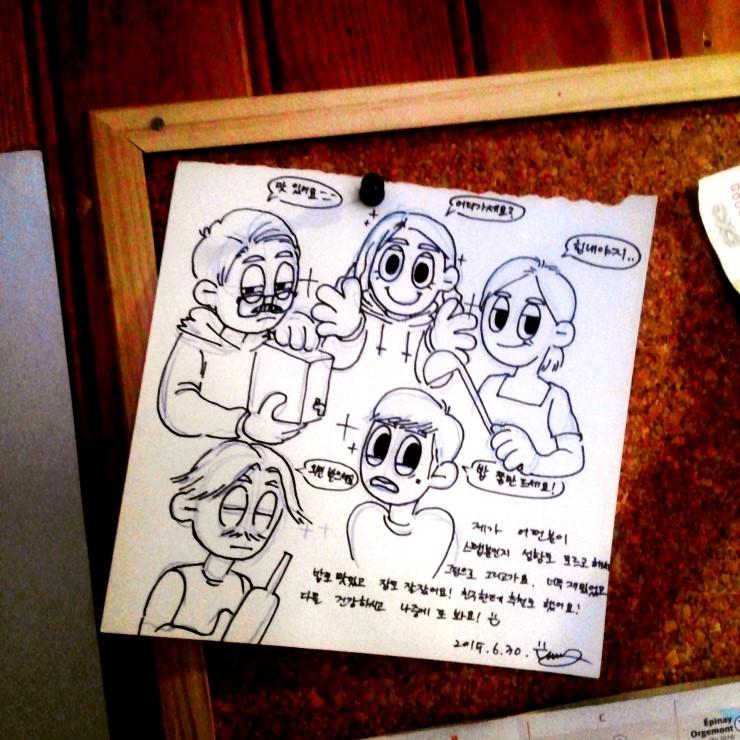 맛 있어요
어디가세요?
힘내야지..
밥 좀만 드세요!
제가 어떤분이
스탭분인지 성함도 모르고 해서
그림으로 그리고가요. 너무 재밌었고
밥도 맛있고 잠도 잘 잤어요! 친구한테 추천도 했어요!
다들 건강하시고 나중에 또 봐요!
2015.6.30.
C
Épinay
Orgemont